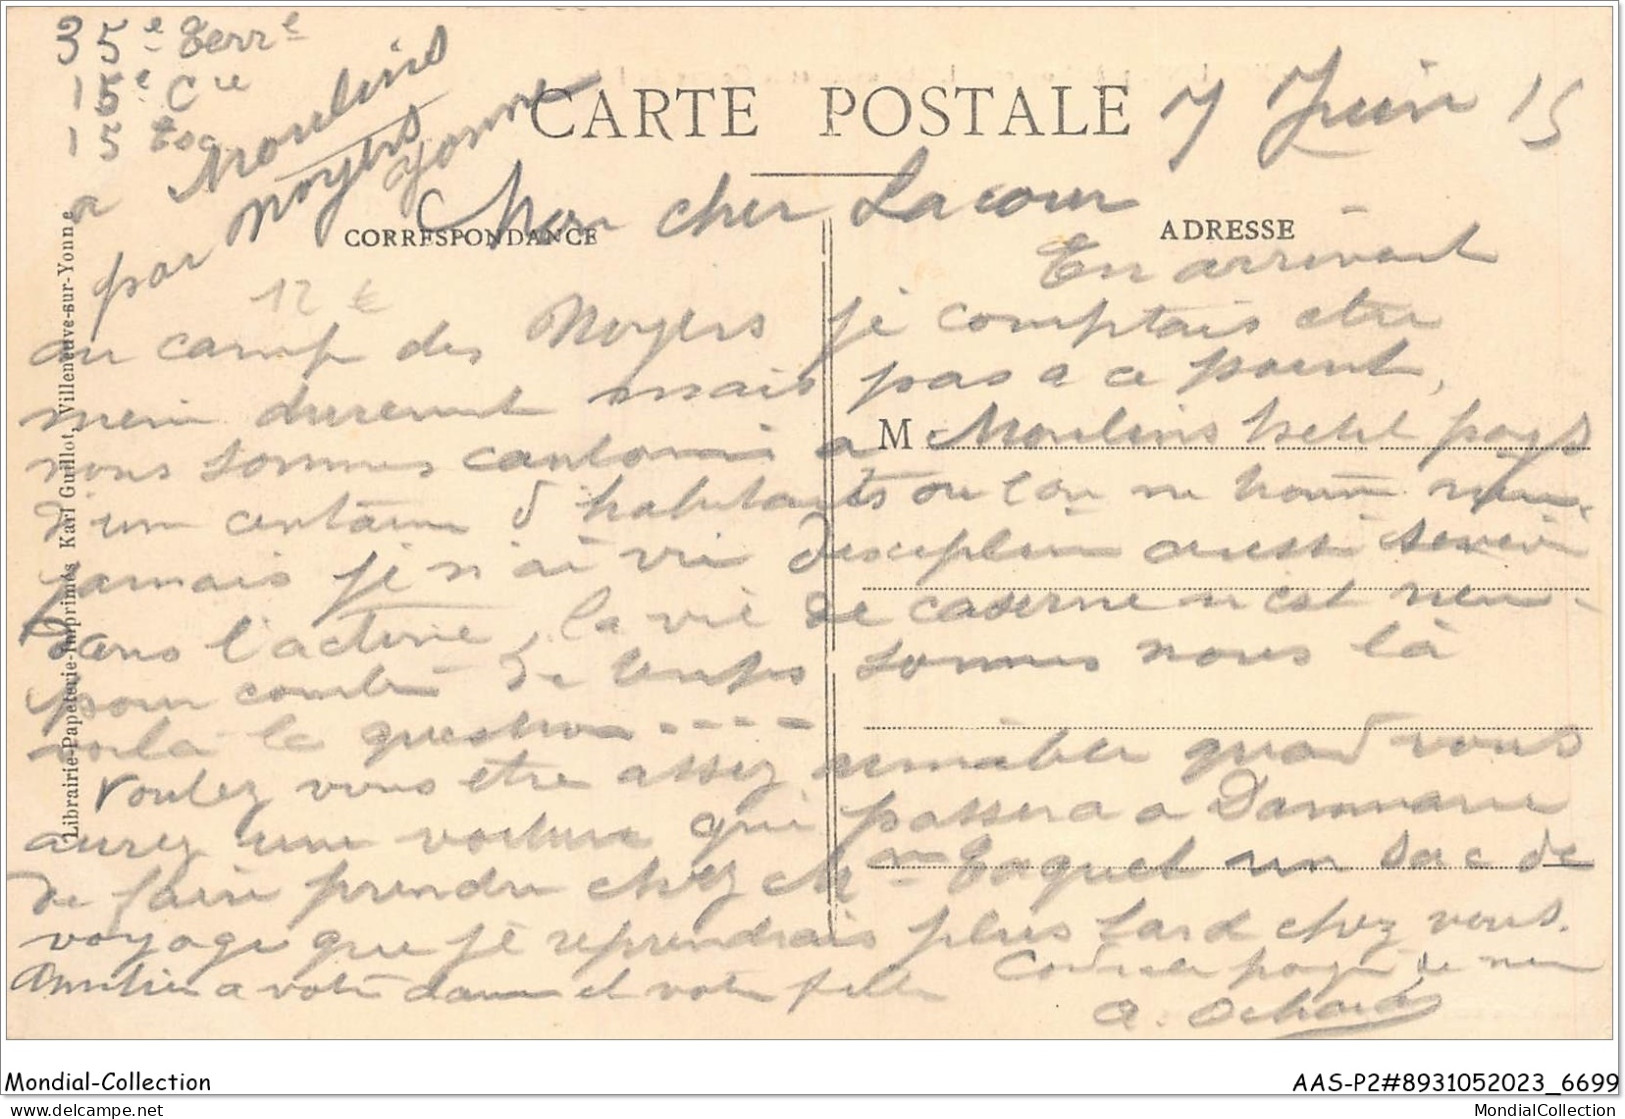 35e Terre
15e Cie
15 Esc
a Moulins
par Noyers
Yonne
CARTE POSTALE
7 Juin 15
Mon cher Lacour
CORRESPONDANCE
ADRESSE
12 €
En arrivant
au camp des Noyers je comptais etre
mais pas a ce point,
nous sommes a Moulins petit pays
M
d'une centaine d'habitants ou l'on ne trouve rien.
jamais je n'ai vu discipline aussi severe
dans l'active, la vie de caserne n'est rien.
pour combien de temps sommes nous là
voila la question ----
Voulez vous etre assez aimable quand vous
aurez une voiture qui passera a Dammarie
de faire prendre chez Mr Toquet un sac de
voyage que je reprendrais plus tard chez vous.
Amitiés a votre dame et votre fille
Cordiale poignée de main
A. Ochard
Librairie-Papeterie-Imprimés Karl Guillot, Villeneuve-sur-Yonne
Mondial-Collection
AAS-P2#8931052023_6699
delcampe.net
MondialCollection